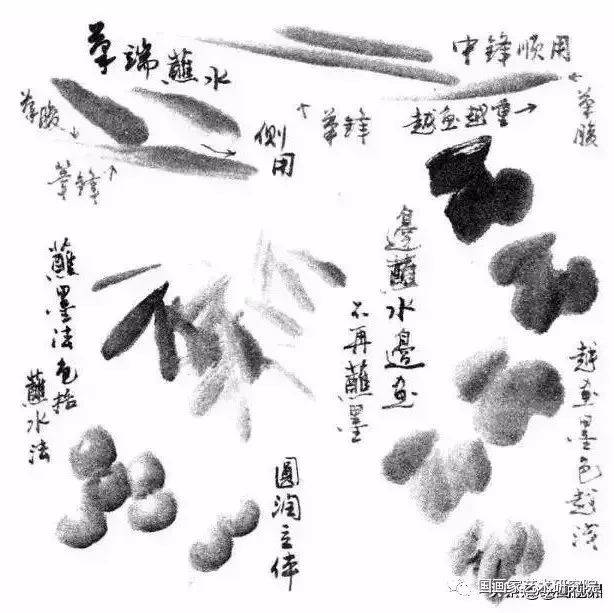 笔端蘸水
中鋒顺用
笔腹
笔鋒
越画越重
笔腹
笔鋒
側用
邊蘸水邊画
不再蘸墨
蘸墨法包括
蘸水法
越画墨色越淡
圓润立体
国画家艺术研究院